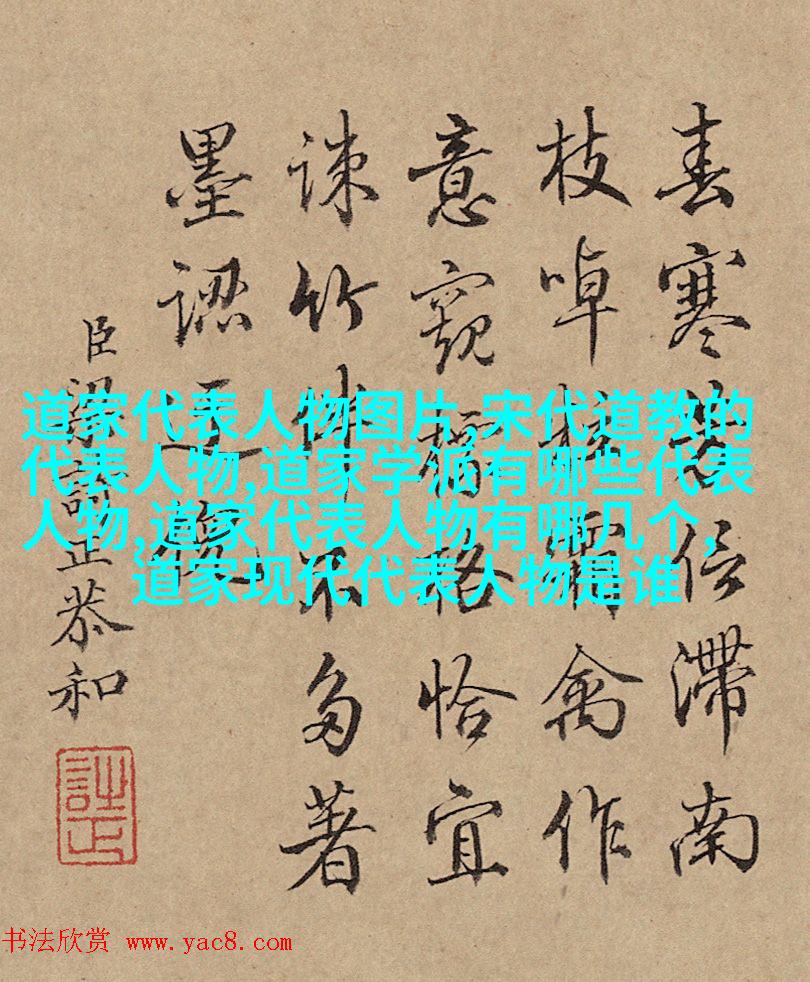 春寒信滯南
枝啅禽作
意窺格恰宜
疎竹伴不多著
墨認
臣梁詩正恭和
道家代表人物图片,宋代道教的
代表人物,道家学派有哪些代表
人物,道家代表人物有哪几个,
道家现代代表人物是谁
书法欣赏 www.yac8.com